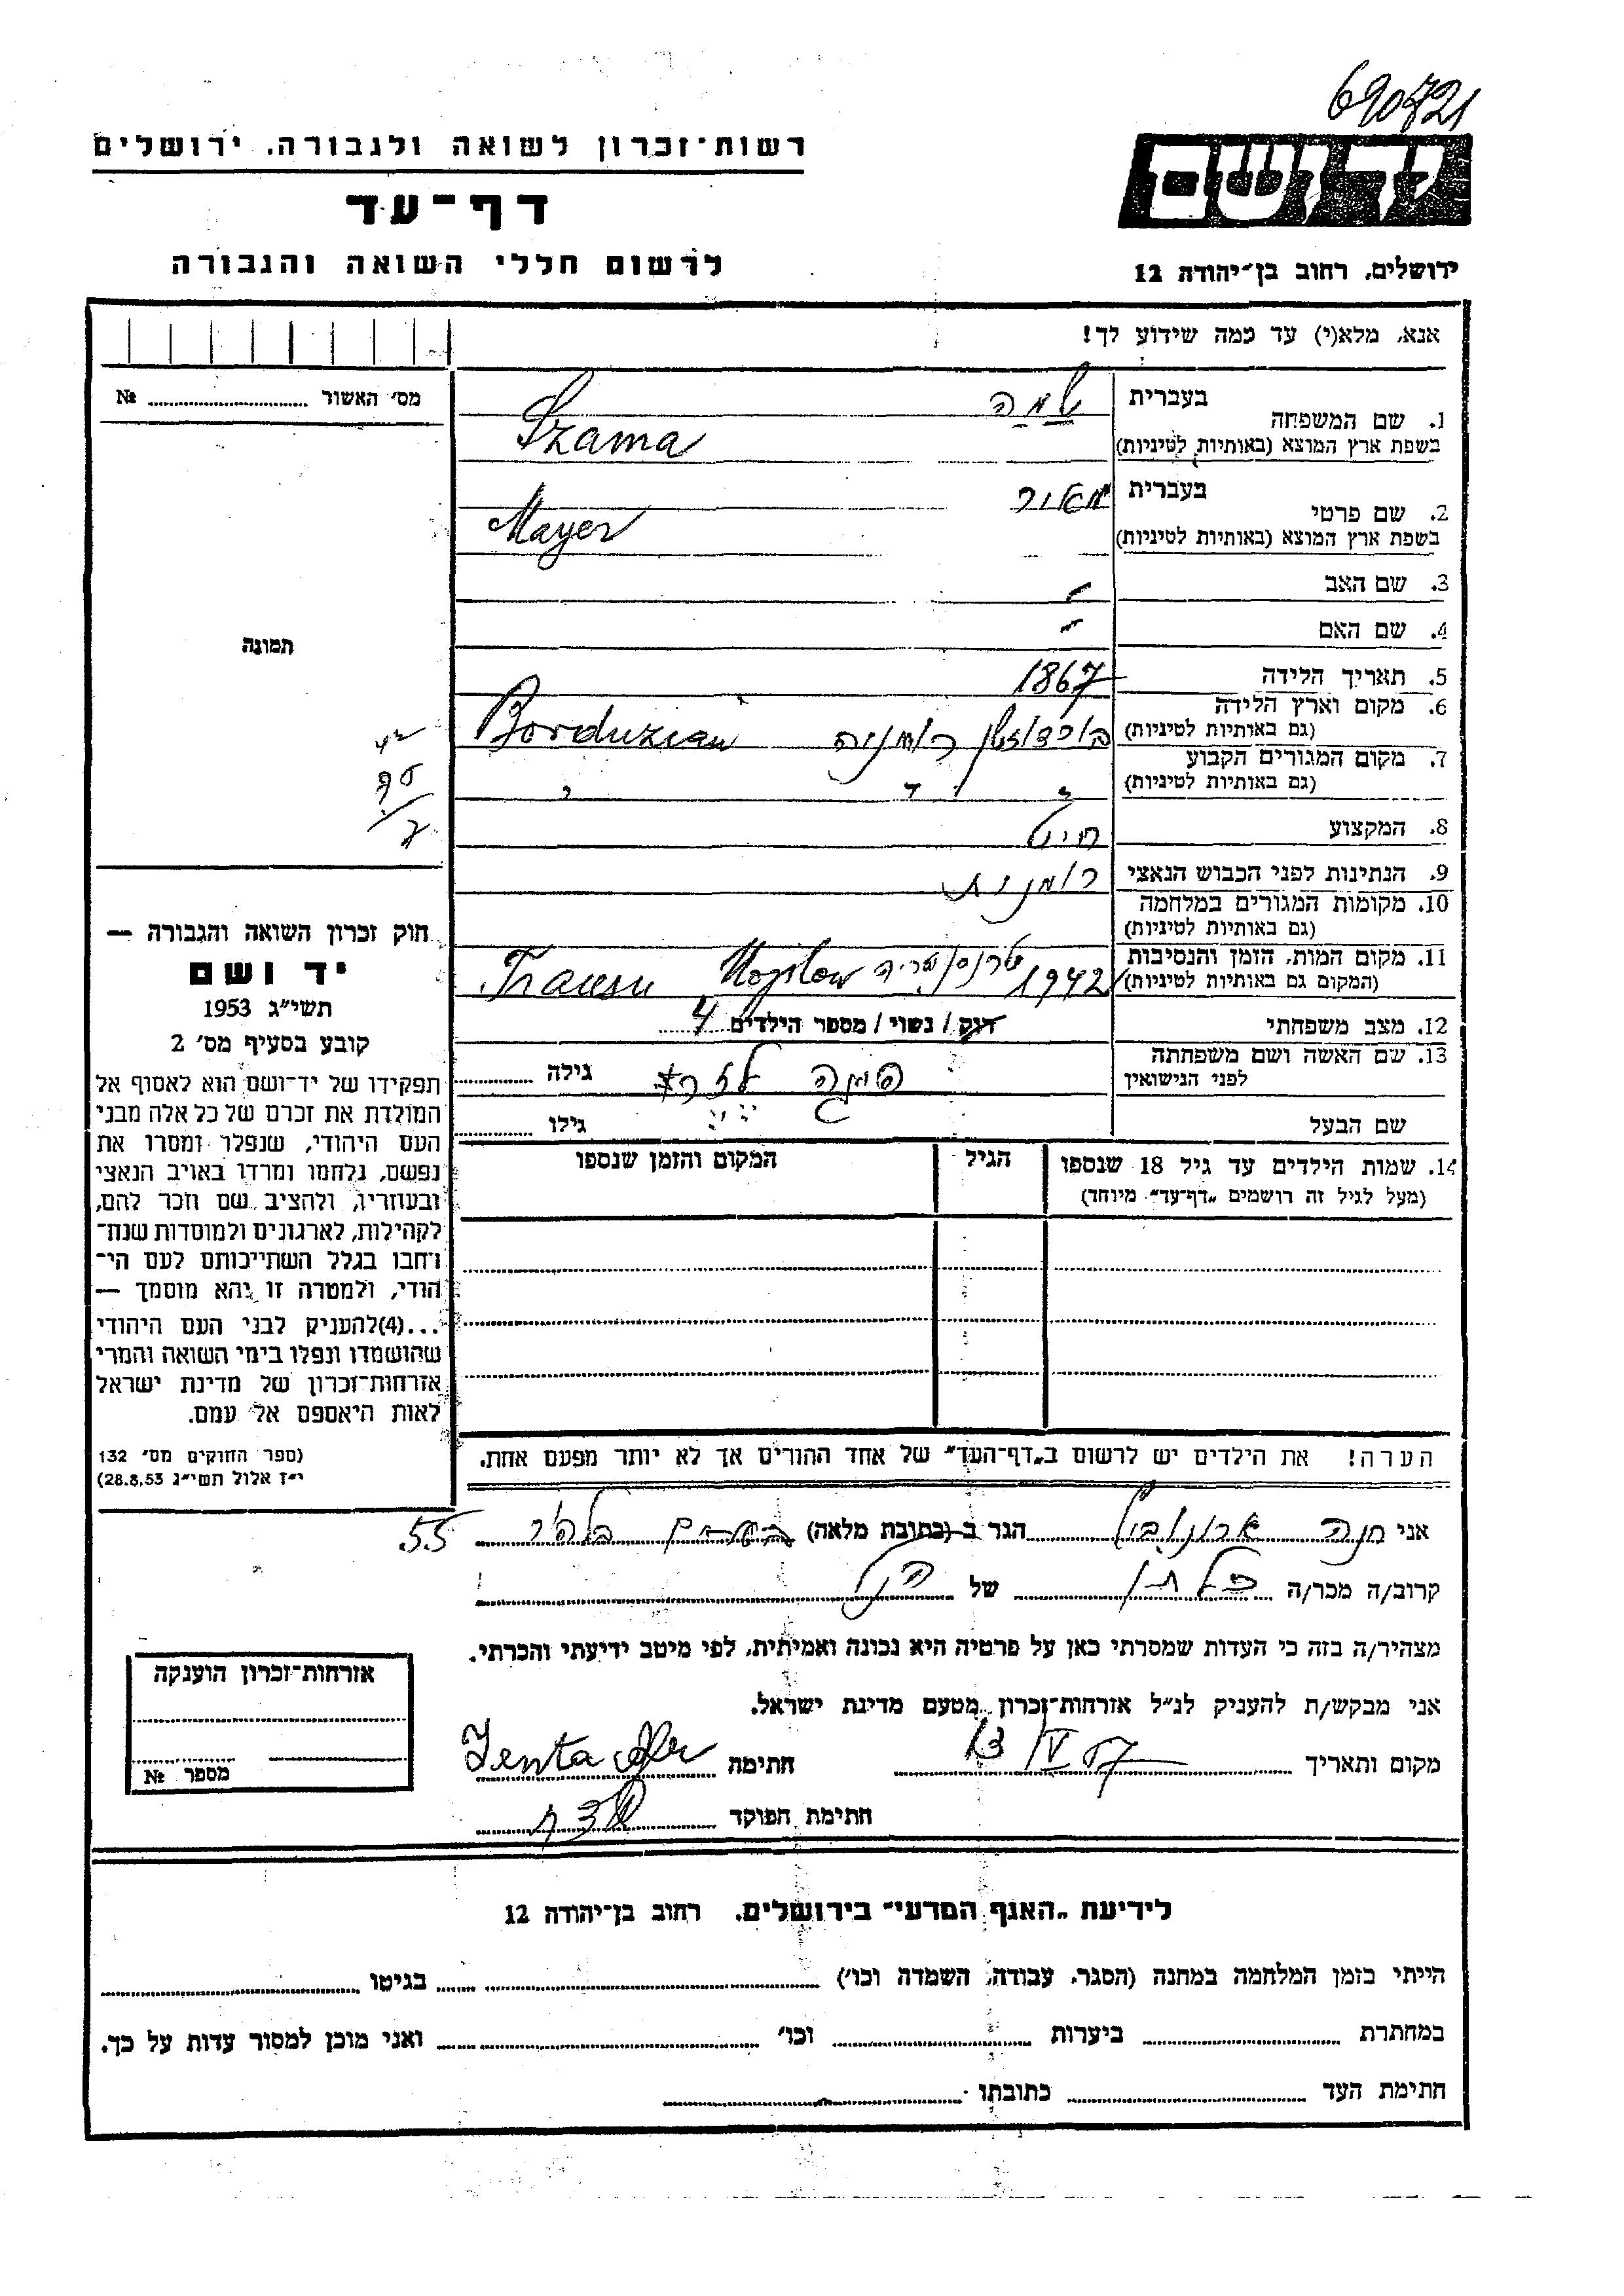 690721
יד ושם
רשות־זכרון לשואה ולגבורה, ירושלים
דף־עד
לרשום חללי השואה והגבורה
ירושלים, רחוב בן־יהודה 12
אנא, מלא(י) עד כמה שידוע לך!
מס' האשור № 
1. שם המשפחה בעברית שמה
בשפת ארץ המוצא (באותיות לטיניות) Szama
2. שם פרטי בעברית מאיר
בשפת ארץ המוצא (באותיות לטיניות) Mayer
3. שם האב -
4. שם האם -
תמונה
5. תאריך הלידה 1867
6. מקום וארץ הלידה
(גם באותיות לטיניות) רומניה Borduzian
7. מקום המגורים הקבוע
(גם באותיות לטיניות)
8. המקצוע חייט
9. הנתינות לפני הכבוש הנאצי רומנית
10. מקומות המגורים במלחמה
(גם באותיות לטיניות)
11. מקום המות, הזמן והנסיבות
(המקום גם באותיות לטיניות) 1942 טרנסניסטריה
12. מצב משפחתי רווק / נשוי / מספר הילדים 4
13. שם האשה ושם משפחתה
לפני הנישואין גילה
שם הבעל גילו
14. שמות הילדים עד גיל 18 שנספו הגיל המקום והזמן שנספו
(מעל לגיל זה רושמים „דף־עד" מיוחד)
הערה! את הילדים יש לרשום ב„דף־העד" של אחד ההורים אך לא יותר מפעם אחת.
חוק זכרון השואה והגבורה —
יד ושם
תשי"ג 1953
קובע בסעיף מס' 2
תפקידו של יד־ושם הוא לאסוף אל
המולדת את זכרם של כל אלה מבני
העם היהודי, שנפלו ומסרו את
נפשם, נלחמו ומרדו באויב הנאצי
ובעוזריו, ולהציב שם וזכר להם,
לקהילות, לארגונים ולמוסדות שנח־
רבו בגלל השתייכותם לעם הי־
הודי, ולמטרה זו יהא מוסמך —
...(4)להעניק לבני העם היהודי
שהושמדו ונפלו בימי השואה והמרי
אזרחות־זכרון של מדינת ישראל
לאות היאספם אל עמם.
(ספר החוקים מס' 132
י"ז אלול תשי"ג 28.8.53)
אני חנה הגר ב (כתובת מלאה) 55
קרוב/ה מכר/ה של הנ"ל
מצהיר/ה בזה כי העדות שמסרתי כאן על פרטיה היא נכונה ואמיתית, לפי מיטב ידיעתי והכרתי.
אני מבקש/ת להעניק לנ"ל אזרחות־זכרון מטעם מדינת ישראל.
מקום ותאריך 13/V 57 חתימה
חתימת הפוקד
אזרחות־זכרון הוענקה
מספר №
לידיעת „האגף המדעי" בירושלים, רחוב בן־יהודה 12
הייתי בזמן המלחמה במחנה (הסגר, עבודה, השמדה וכו') בגיטו
במחתרת ביערות וכו' ואני מוכן למסור עדות על כך.
חתימת העד כתובתו